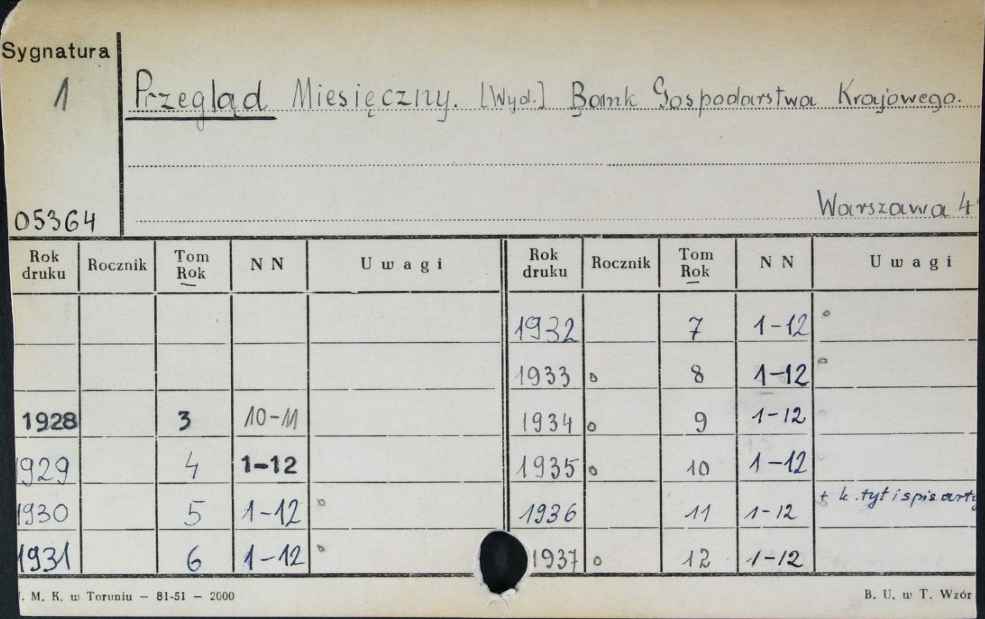 Sygnatura
1
Przegląd Miesięczny. [Wyd.] Bank Gospodarstwa Krajowego.
05364
Warszawa 4°
Rok druku Rocznik Tom Rok N N Uwagi Rok druku Rocznik Tom Rok N N Uwagi
1932 7 1-12 °
1933 o 8 1-12 °
1928 3 10-11 1934 o 9 1-12
1929 4 1-12 1935 o 10 1-12
1930 5 1-12 ° 1936 11 1-12 + k. tyt i spis arty
1931 6 1-12 ° 1937 o 12 1-12
. M. K. w Toruniu — 81-51 — 2000 B. U. w T. Wzór